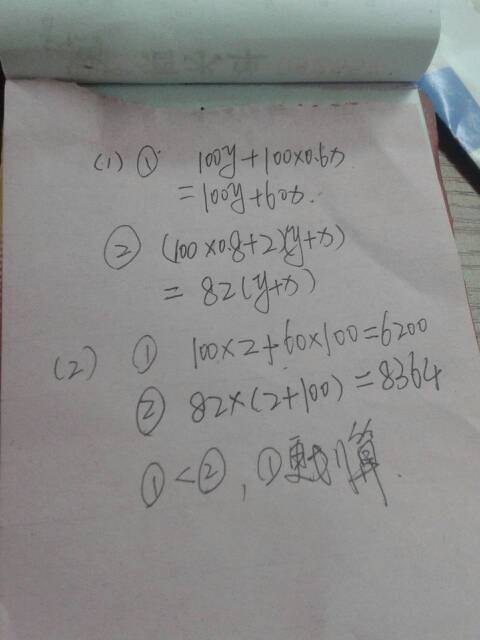 (1) ① 100y+100×0.6x
=100y+60x.
② (100×0.8+2)(y+x)
= 82(y+x)
(2) ① 100×2+60×100=6200
② 82×(2+100)=8364
①<②, ①更划算.